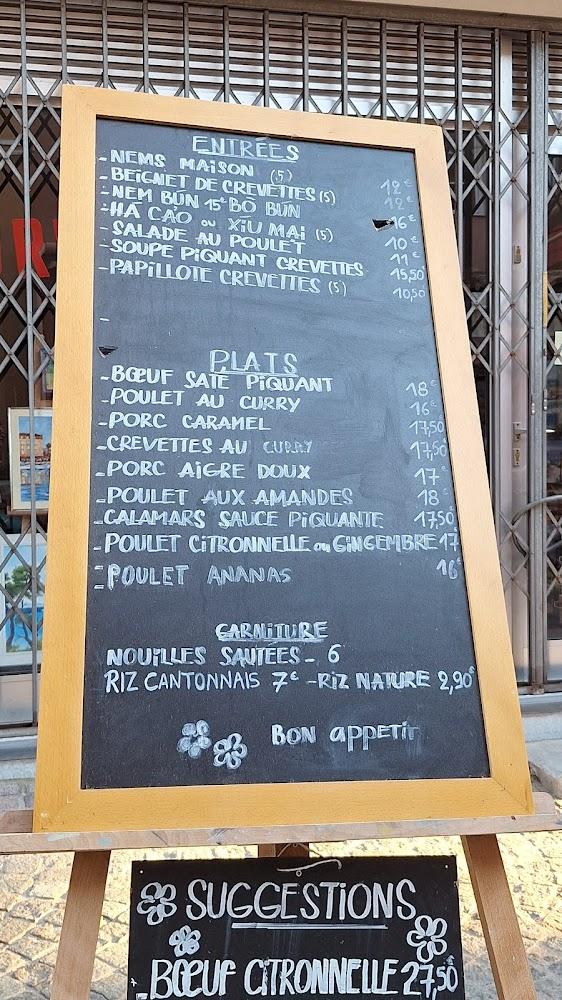 ENTRÉES
-NEMS MAISON (5) 12€
-BEIGNET DE CREVETTES (5) 12€
-NEM BÚN 15€ BÒ BÚN 16€
-HÁ CẢO ou XÍU MAI (5) 10€
-SALADE AU POULET 11€
-SOUPE PiQUANT CREVETTES 15,50
-PAPILLOTE CREVETTES (5) 10,50
-
PLATS
-BŒUF SATÉ PIQUANT 18€
-POULET AU CURRY 16€
-PORC CARAMEL 17,50
-CREVETTES AU CURRY 17,50
-PORC AiGRE DOUX 17€
-POULET AUX AMANDES 18€
-CALAMARS SAUCE PiQUANTE 17,50
-POULET CiTRONNELLE ou GiNGEMBRE 17
-POULET ANANAS 16€
GARNITURE
NOUILLES SAUTÉES - 6
RIZ CANTONNAIS 7€ -RIZ NATURE 2,90€
BON appETiT
SUGGESTiONS
-BŒUF CITRONNELLE 27,50